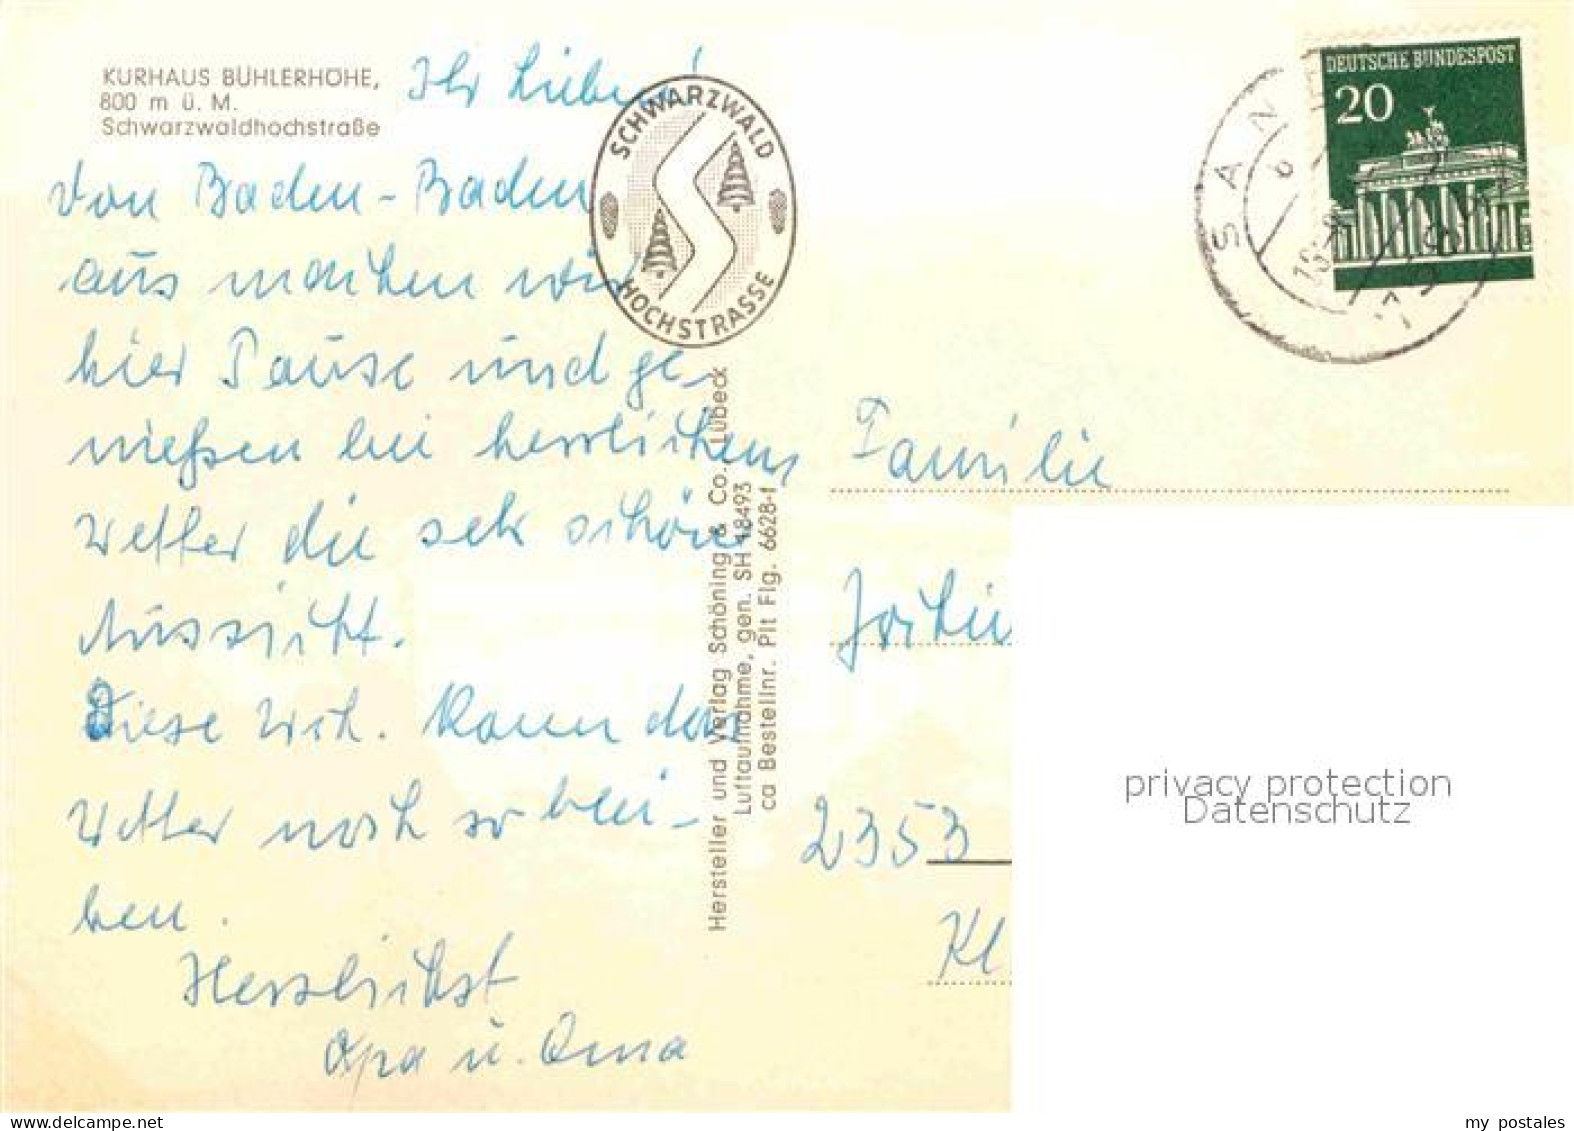 KURHAUS BÜHLERHÖHE,
800 m ü. M.
Schwarzwaldhochstraße
Ihr Lieben!
Von Baden-Baden
aus machen wir
hier Pause und ge-
nießen bei herrlichem
Wetter die sehr schöne
Aussicht.
Diese Wch. kann das
Wetter noch so blei-
ben.
Herzlichst
Opa u. Oma
SCHWARZWALD
HOCHSTRASSE
Hersteller und Verlag Schöning & Co., Lübeck
Luftaufnahme, gen. SH 18493
ca Bestellnr. Plt Flg. 6628-f
DEUTSCHE BUNDESPOST
20
Familie
2353
Kl
privacy protection
Datenschutz
my postales